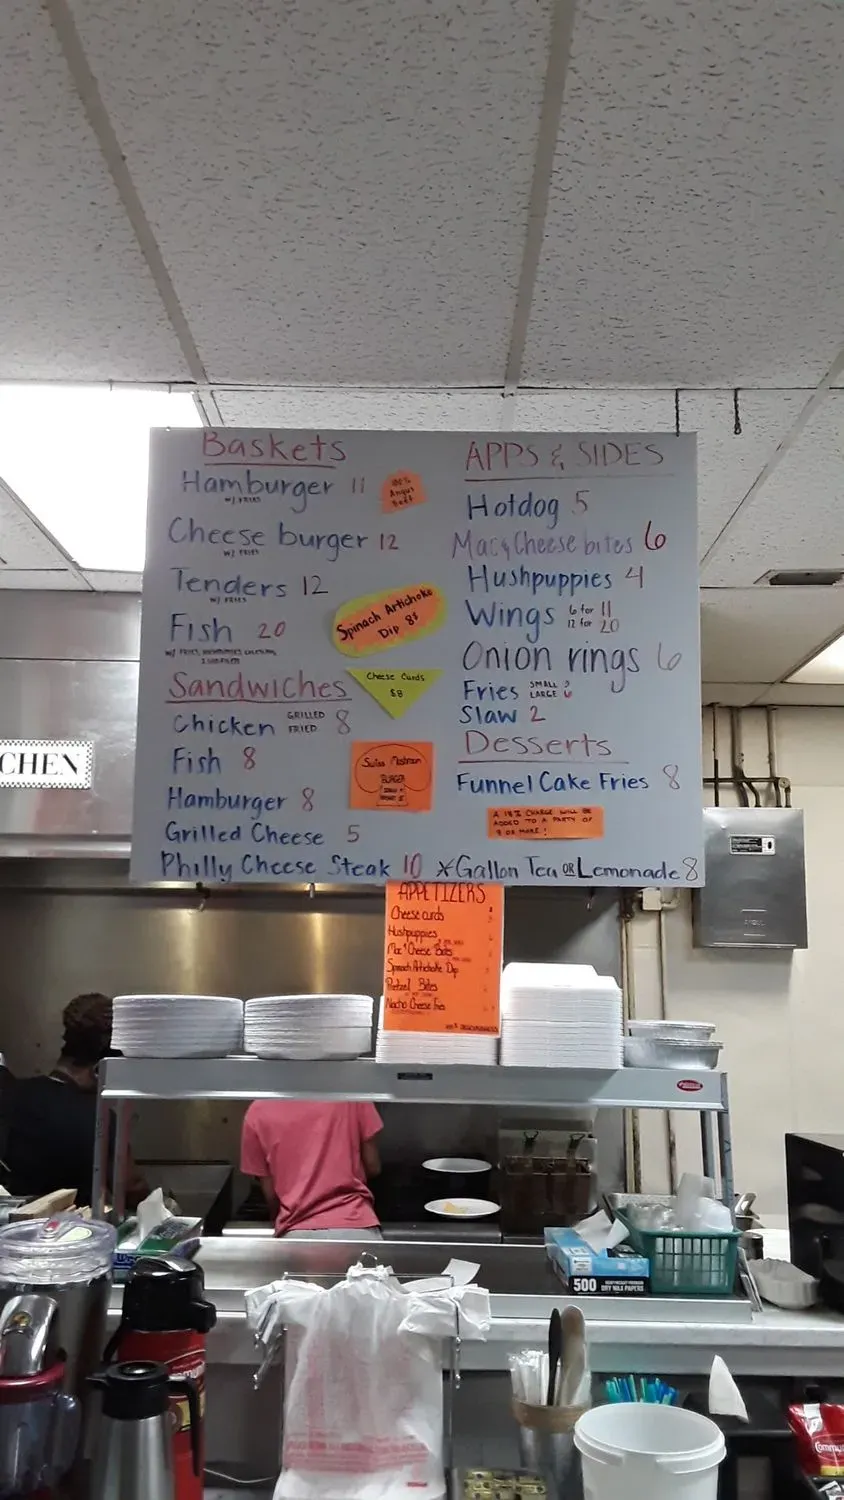 Baskets
Hamburger 11
W/ FRIES
100%
Angus
Beef
Cheese burger 12
W/ FRIES
Tenders 12
W/ FRIES
Fish 20
W/ FRIES, HUSHPUPPIES
Spinach Artichoke
Dip 8$
Cheese Curds
$8
Sandwiches
Chicken GRILLED 8
FRIED
Fish 8
Hamburger 8
Grilled Cheese 5
Philly Cheese Steak 10
Swiss Mushroom
BURGER
APPS & SIDES
Hotdog 5
Mac & Cheese bites 6
Hushpuppies 4
Wings 6 for 11
12 for 20
Onion rings 6
Fries SMALL
LARGE 6
Slaw 2
Desserts
Funnel Cake Fries 8
A 18% CHARGE WILL BE
ADDED TO A PARTY OF
OR MORE!
*Gallon Tea OR Lemonade 8
APPETIZERS
Cheese curds
Hushpuppies
Mac & Cheese Bites
Spinach Artichoke Dip
Pretzel Bites
Nacho Cheese Fries
CHEN
500
DRY WAX PAPERS